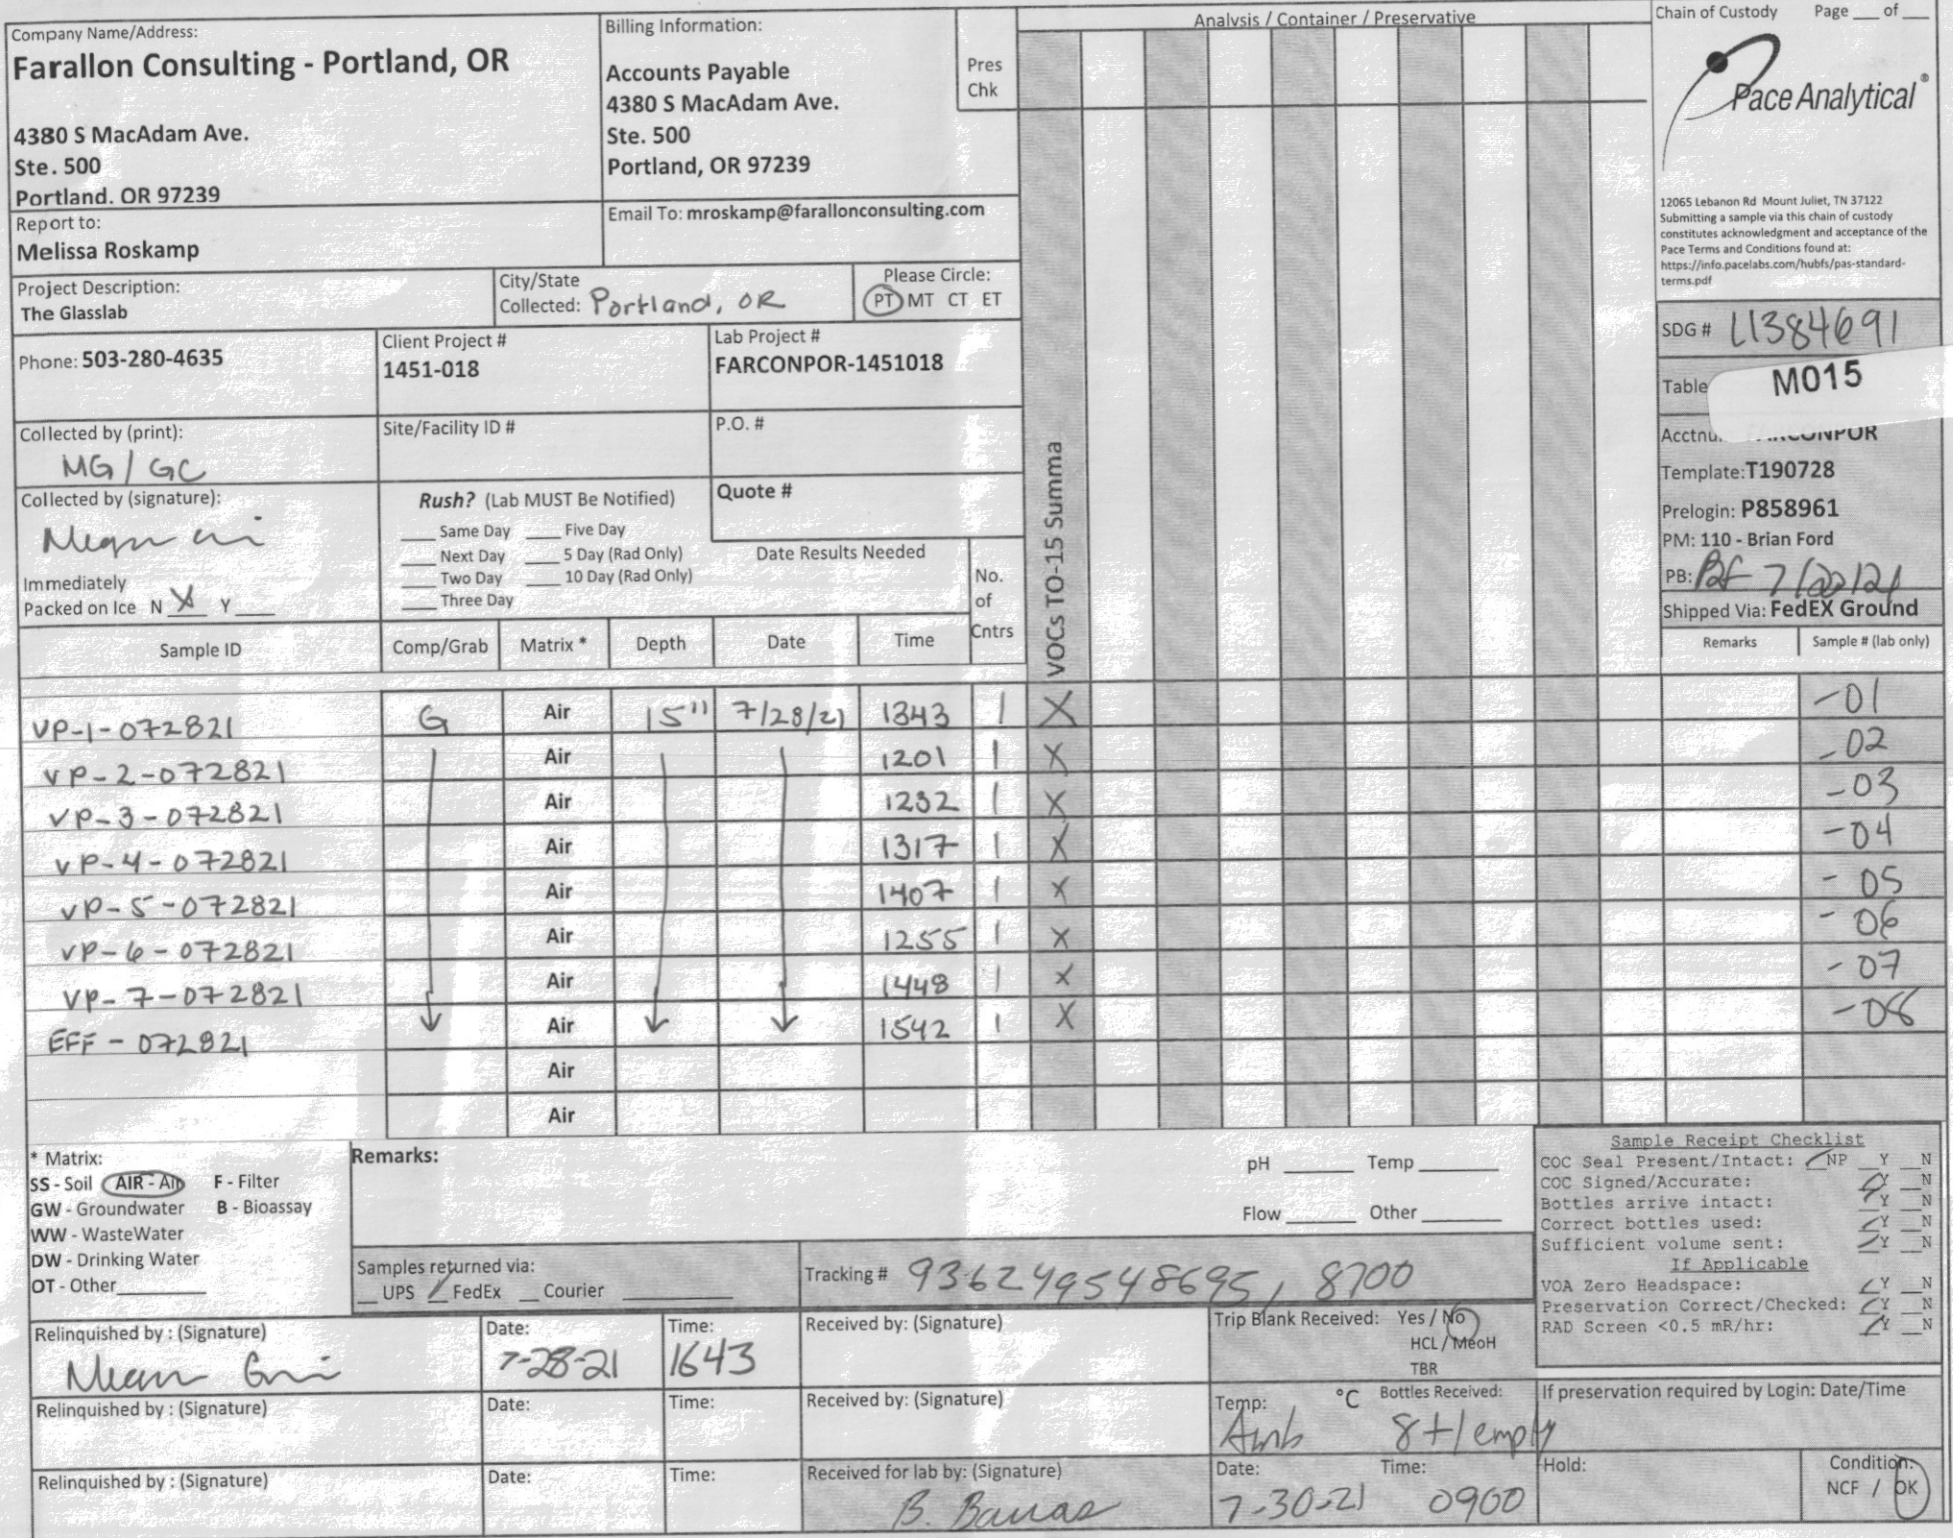 Company Name/Address:
Farallon Consulting - Portland, OR
4380 S MacAdam Ave.
Ste. 500
Portland. OR 97239
Billing Information:
Accounts Payable
4380 S MacAdam Ave.
Ste. 500
Portland, OR 97239
Pres
Chk
Analysis / Container / Preservative
Chain of Custody Page ___ of ___
Pace Analytical®
12065 Lebanon Rd Mount Juliet, TN 37122
Submitting a sample via this chain of custody
constitutes acknowledgment and acceptance of the
Pace Terms and Conditions found at:
https://info.pacelabs.com/hubfs/pas-standard-
terms.pdf
Report to:
Melissa Roskamp
Email To: mroskamp@farallonconsulting.com
Project Description:
The Glasslab
City/State
Collected: Portland, OR
Please Circle:
PT MT CT ET
Phone: 503-280-4635
Client Project #
1451-018
Lab Project #
FARCONPOR-1451018
SDG # L1384691
Table
M015
Collected by (print):
MG / GC
Site/Facility ID #
P.O. #
Acctnu FARCONPOR
Template:T190728
Prelogin: P858961
PM: 110 - Brian Ford
PB: BF
Shipped Via: FedEX Ground
Collected by (signature):
Rush? (Lab MUST Be Notified)
___ Same Day ___ Five Day
___ Next Day ___ 5 Day (Rad Only)
___ Two Day ___ 10 Day (Rad Only)
___ Three Day
Quote #
Date Results Needed
Immediately
Packed on Ice N X Y ___
No.
of
Cntrs
VOCs TO-15 Summa
Sample ID Comp/Grab Matrix * Depth Date Time Remarks Sample # (lab only)
VP-1-072821 G Air 15" 7/28/21 1343 1 X -01
VP-2-072821 Air 1201 1 X -02
VP-3-072821 Air 1232 1 X -03
VP-4-072821 Air 1317 1 X -04
VP-5-072821 Air 1407 1 X -05
VP-6-072821 Air 1255 1 X -06
VP-7-072821 Air 1448 1 X -07
EFF-072821 Air 1542 1 X -08
Air
Air
* Matrix:
SS - Soil AIR - Air F - Filter
GW - Groundwater B - Bioassay
WW - WasteWater
DW - Drinking Water
OT - Other___
Remarks:
pH ___ Temp ___
Flow ___ Other ___
Samples returned via:
__ UPS ✓ FedEx __ Courier ___
Tracking # 936249548695, 8700
Sample Receipt Checklist
COC Seal Present/Intact: ✓NP __Y __N
COC Signed/Accurate: ✓Y __N
Bottles arrive intact: ✓Y __N
Correct bottles used: ✓Y __N
Sufficient volume sent: ✓Y __N
If Applicable
VOA Zero Headspace: ✓Y __N
Preservation Correct/Checked: ✓Y __N
RAD Screen <0.5 mR/hr: ✓Y __N
Relinquished by : (Signature)
Date:
7-28-21
Time:
1643
Received by: (Signature)
Trip Blank Received: Yes / No
HCL / MeoH
TBR
Relinquished by : (Signature)
Date:
Time:
Received by: (Signature)
Temp: °C
Amb
Bottles Received:
8+1 empty
If preservation required by Login: Date/Time
Relinquished by : (Signature)
Date:
Time:
Received for lab by: (Signature)
Date:
7-30-21
Time:
0900
Hold:
Condition:
NCF / OK